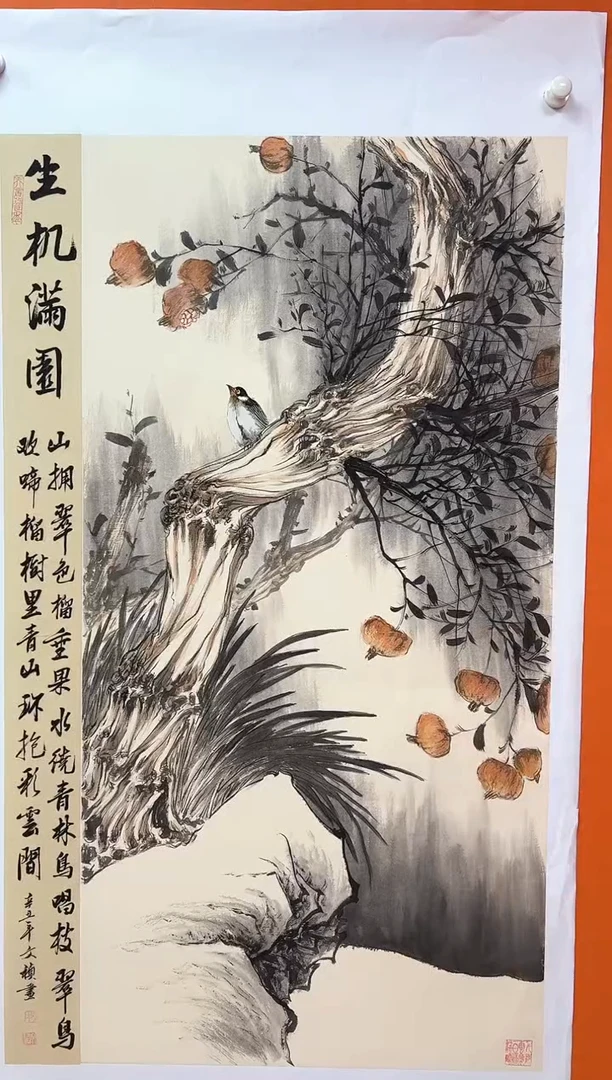 生机滿園
山拥翠色榴垂果水绕青林鸟唱枝翠鸟
欢啼榴樹里青山环抱彩雲間
辛丑年文楨畫